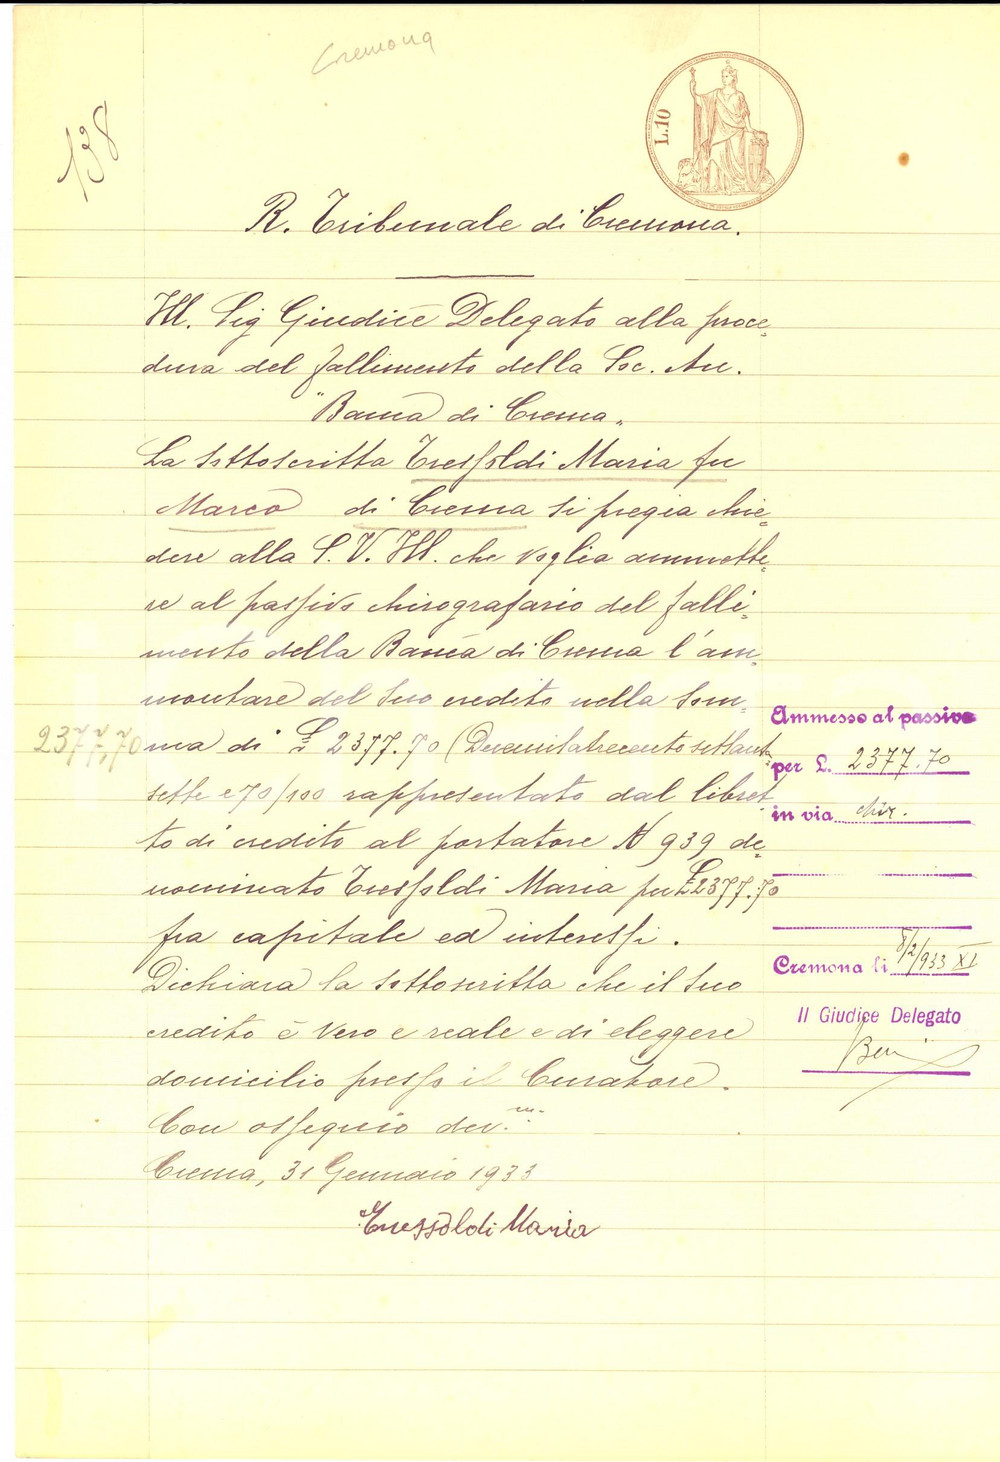 Cremona
138
L.10
R. Tribunale di Cremona.
Ill. Sig Giudice Delegato alla proce-
dura del fallimento della Soc. An.
"Banca di Crema"
La sottoscritta Tressoldi Maria fu
Marco di Crema si pregia chie-
dere alla S. V. Ill. che voglia ammette-
re al passivo chirografario del falli-
mento della Banca di Crema l'am-
montare del suo credito nella som-
2377,70
ma di £ 2377.70 (Duemilatrecentosettanta
sette e 70/100 rappresentato dal libret-
to di credito al portatore N 939 de-
nominato Tressoldi Maria per £ 2377.70
fra capitale ed interessi.
Dichiara la sottoscritta che il suo
credito è vero e reale e di eleggere
domicilio presso il Curatore.
Con ossequio dev.m.
Crema, 31 Gennaio 1933
Tressoldi Maria
Ammesso al passivo
per L. 2377.70
in via chir.
Cremona li 8/2/933 XI
Il Giudice Delegato